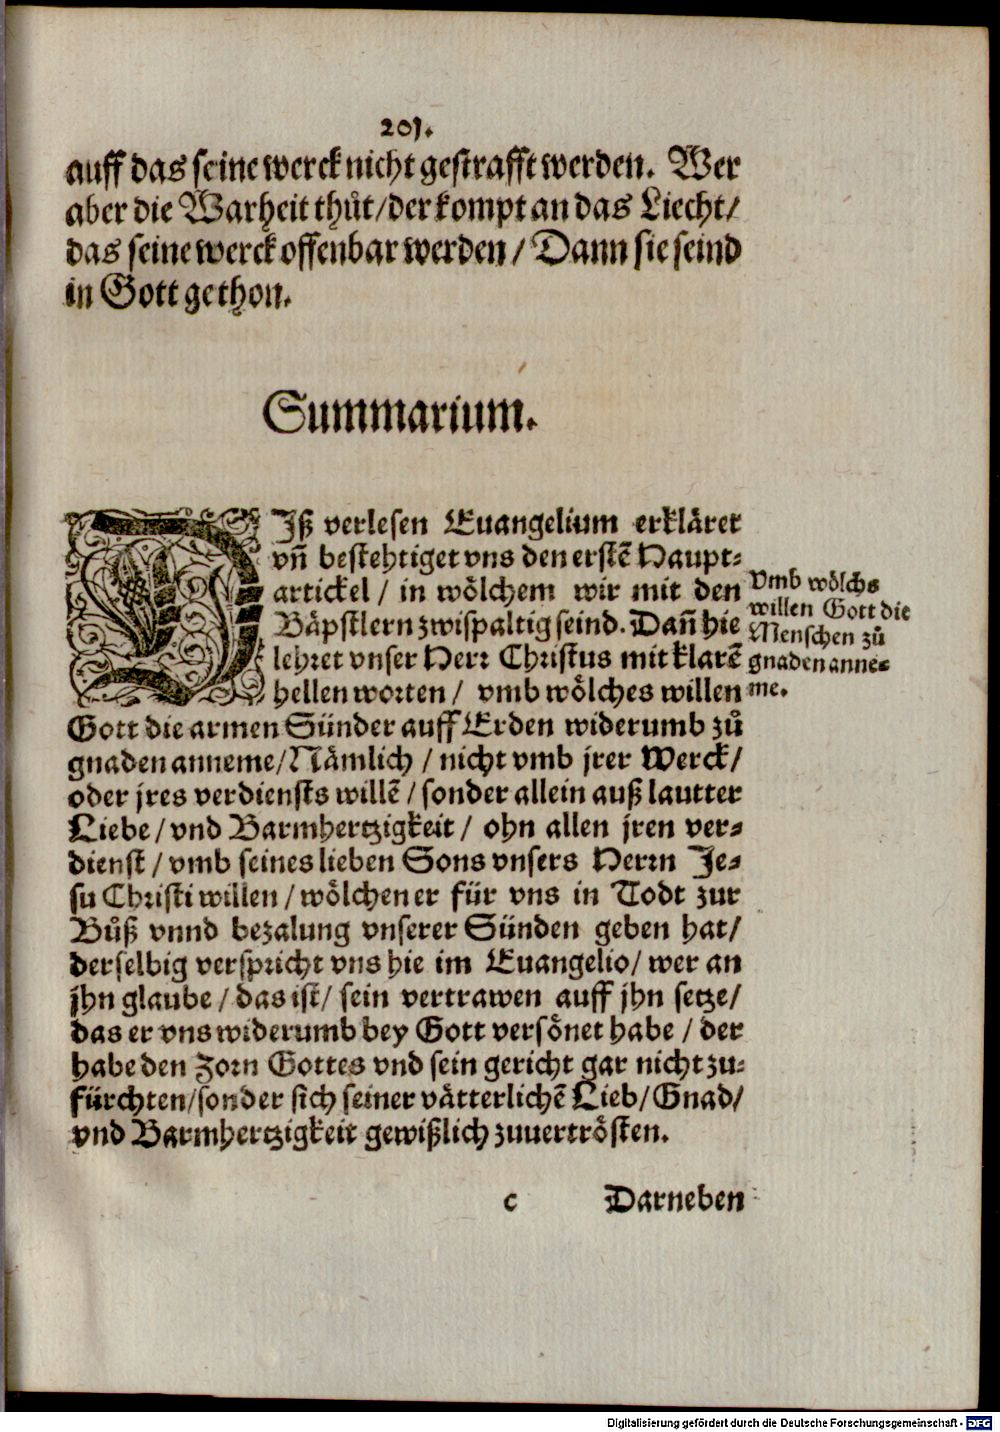 201.
auff das seine werck nicht gestrafft werden. Wer
aber die Warheit thůt / der kompt an das Liecht /
das seine werck offenbar werden / Dann sie seind
in Gott gethon.
Summarium.
DIß verlesen Euangelium erkläret
vn̄ bestehtiget vns den erstē Haupt-
artickel / in wölchem wir mit den
Bäpstlern zwispaltig seind. Dan̄ hie
lehret vnser Herr Christus mit klarē
hellen worten / vmb wölches willen
Gott die armen Sünder auff Erden widerumb zů
gnaden anneme / Nämlich / nicht vmb jrer Werck /
oder jres verdiensts willē / sonder allein auß lautter
Liebe / vnd Barmhertzigkeit / ohn allen jren ver-
dienst / vmb seines lieben Sons vnsers Herrn Je-
su Christi willen / wölchen er für vns in Todt zur
Bůß vnnd bezalung vnserer Sünden geben hat /
derselbig verspricht vns hie im Euangelio / wer an
jhn glaube / das ist / sein vertrawen auff jhn setze /
das er vns widerumb bey Gott versönet habe / der
habe den Zorn Gottes vnd sein gericht gar nicht zu-
fürchten / sonder sich seiner vätterlichē Lieb / Gnad /
vnd Barmhertzigkeit gewißlich zuuertrösten.
Vmb wölchs
willen Gott die
Menschen zů
gnaden anne-
me.
c Darneben
Digitalisierung gefördert durch die Deutsche Forschungsgemeinschaft - DFG